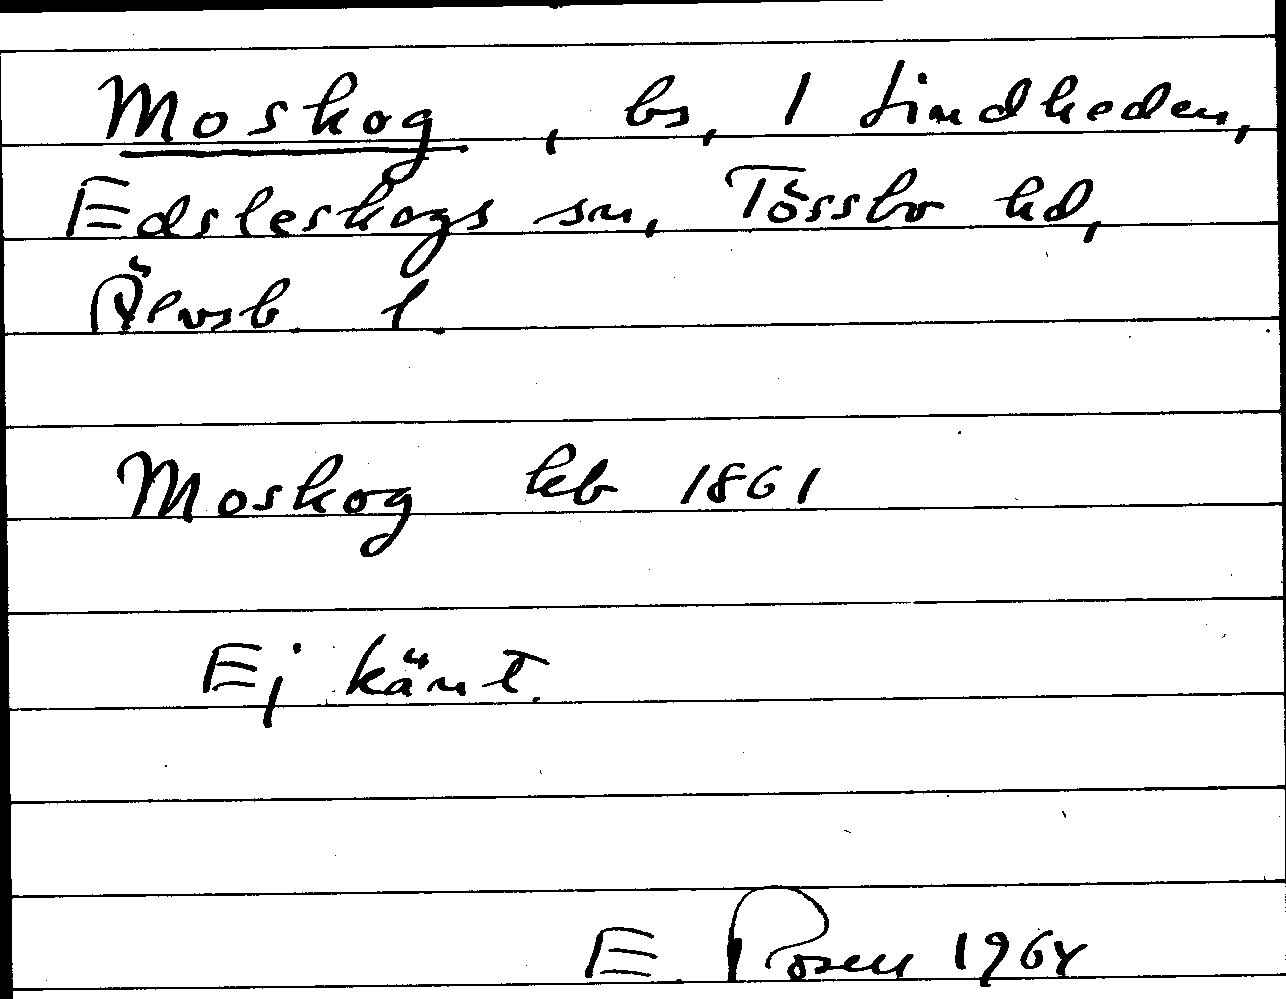 Moskog, bs, 1 Lindheden,
Edsleskogs sn, Tössbo hd,
Älvsb. l.
Moskog kb 1861
Ej känt.
E. Rosen 1964